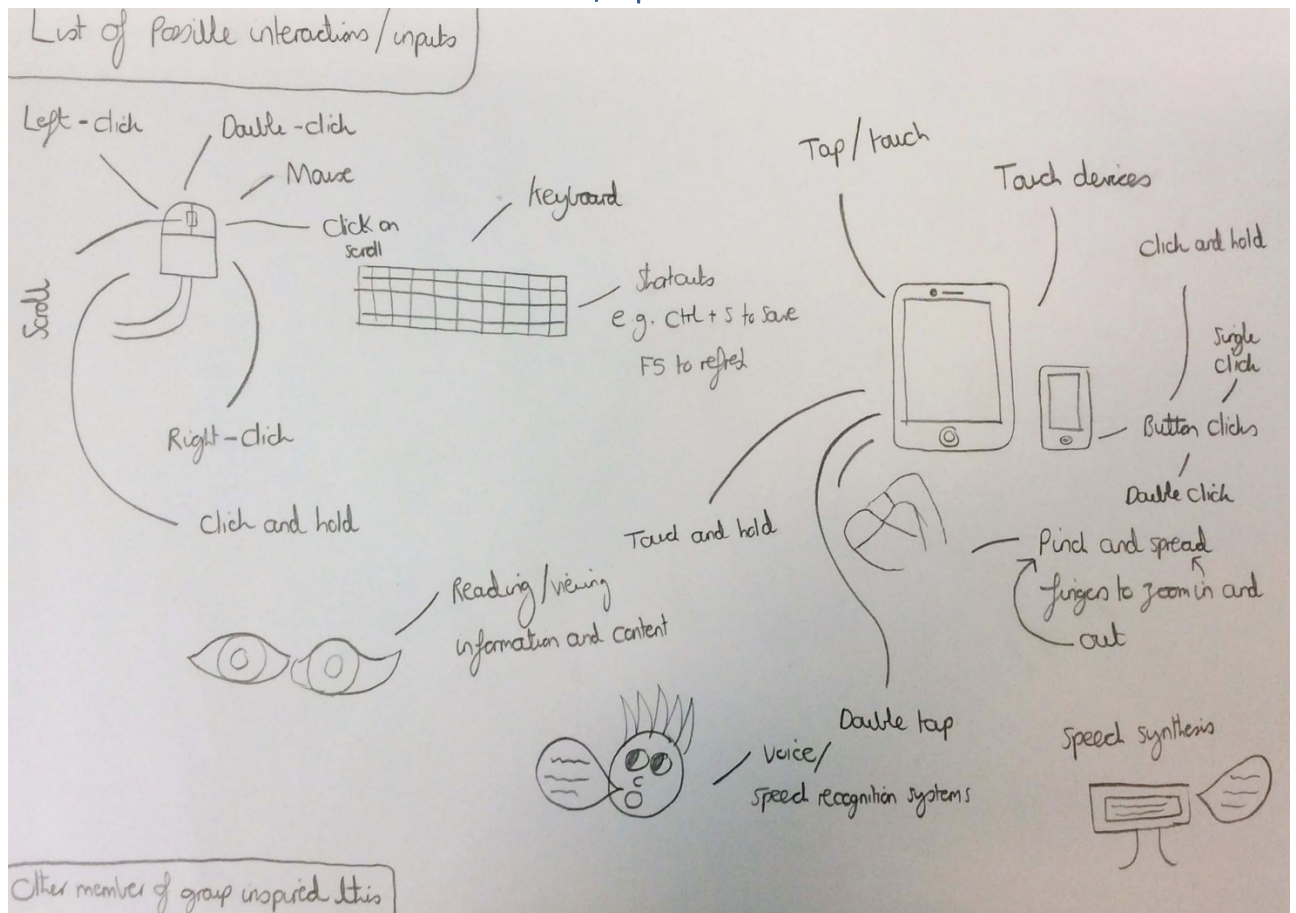 List of Possible interactions/inputs
Left-click
Double-click
Mouse
Click on
scroll
Scroll
Right-click
Click and hold
Keyboard
Shortcuts
e.g. Ctrl + S to save
F5 to refresh
Tap/touch
Touch devices
Click and hold
Single
click
Button clicks
Double click
Touch and hold
Pinch and spread
fingers to zoom in and
out
Reading/viewing
information and content
Double tap
Voice/
Speech recognition systems
Speech synthesis
Other member of group inspired this